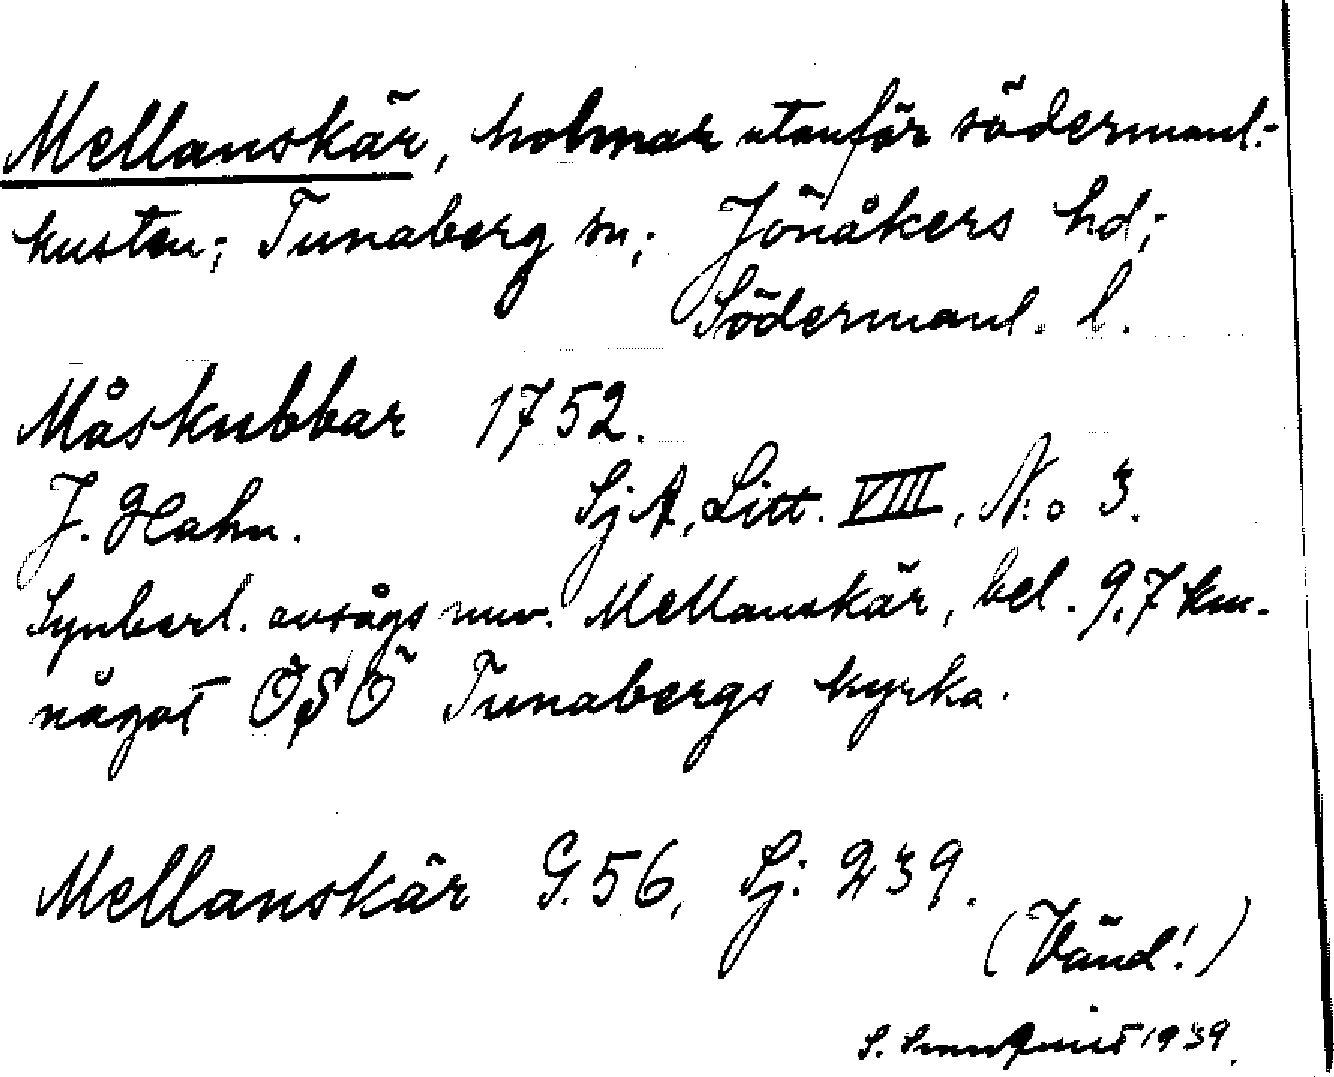 Mellanskär, holmar utanför södermanl.-
kusten; Tunaberg sn; Jönåkers hd;
Södermanl. l.
Måskubbar 1752.
J. Hahn. SjA, Litt. VIII, N:o 3.
Synberl. avsågs nuv. Mellanskär, bel. 9,7 km.
något OSO Tunabergs kyrka.
Mellanskär G.56, Sj: 239.
(Vänd!)
S. 1939.